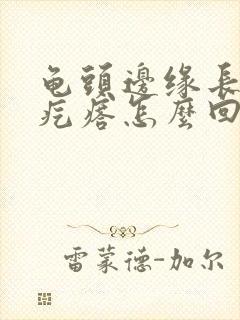 龟頭邊缘長
疙瘩怎麼回
雷蒙德-加尔